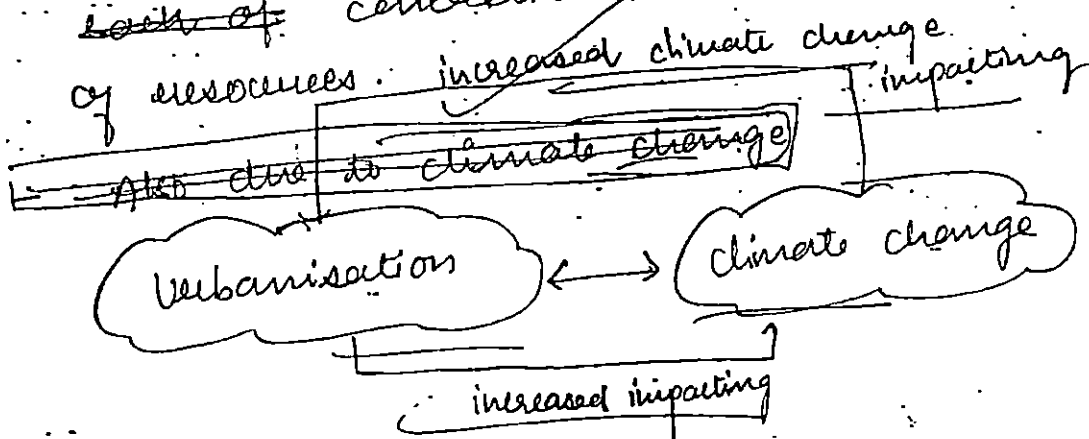 of resources. increased climate change
impacting
Also due to climate change
Urbanisation
climate change
increased impacting